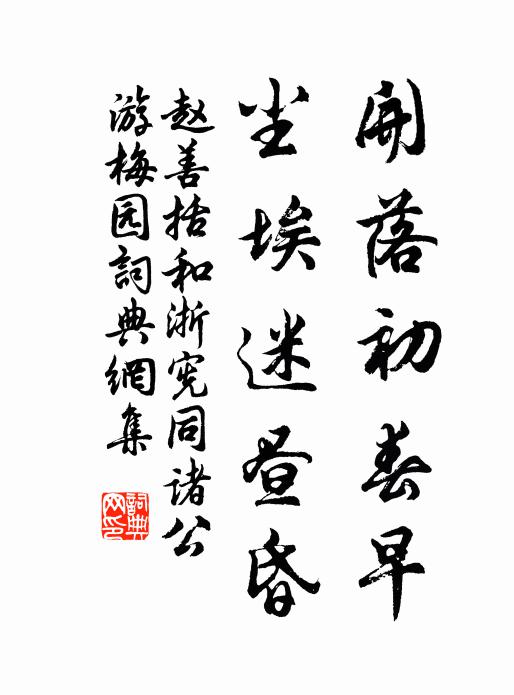 開落初春早
尘埃迷昼昏
赵善括和浙宪同诸公
游梅园詞典網集
詞典
网印